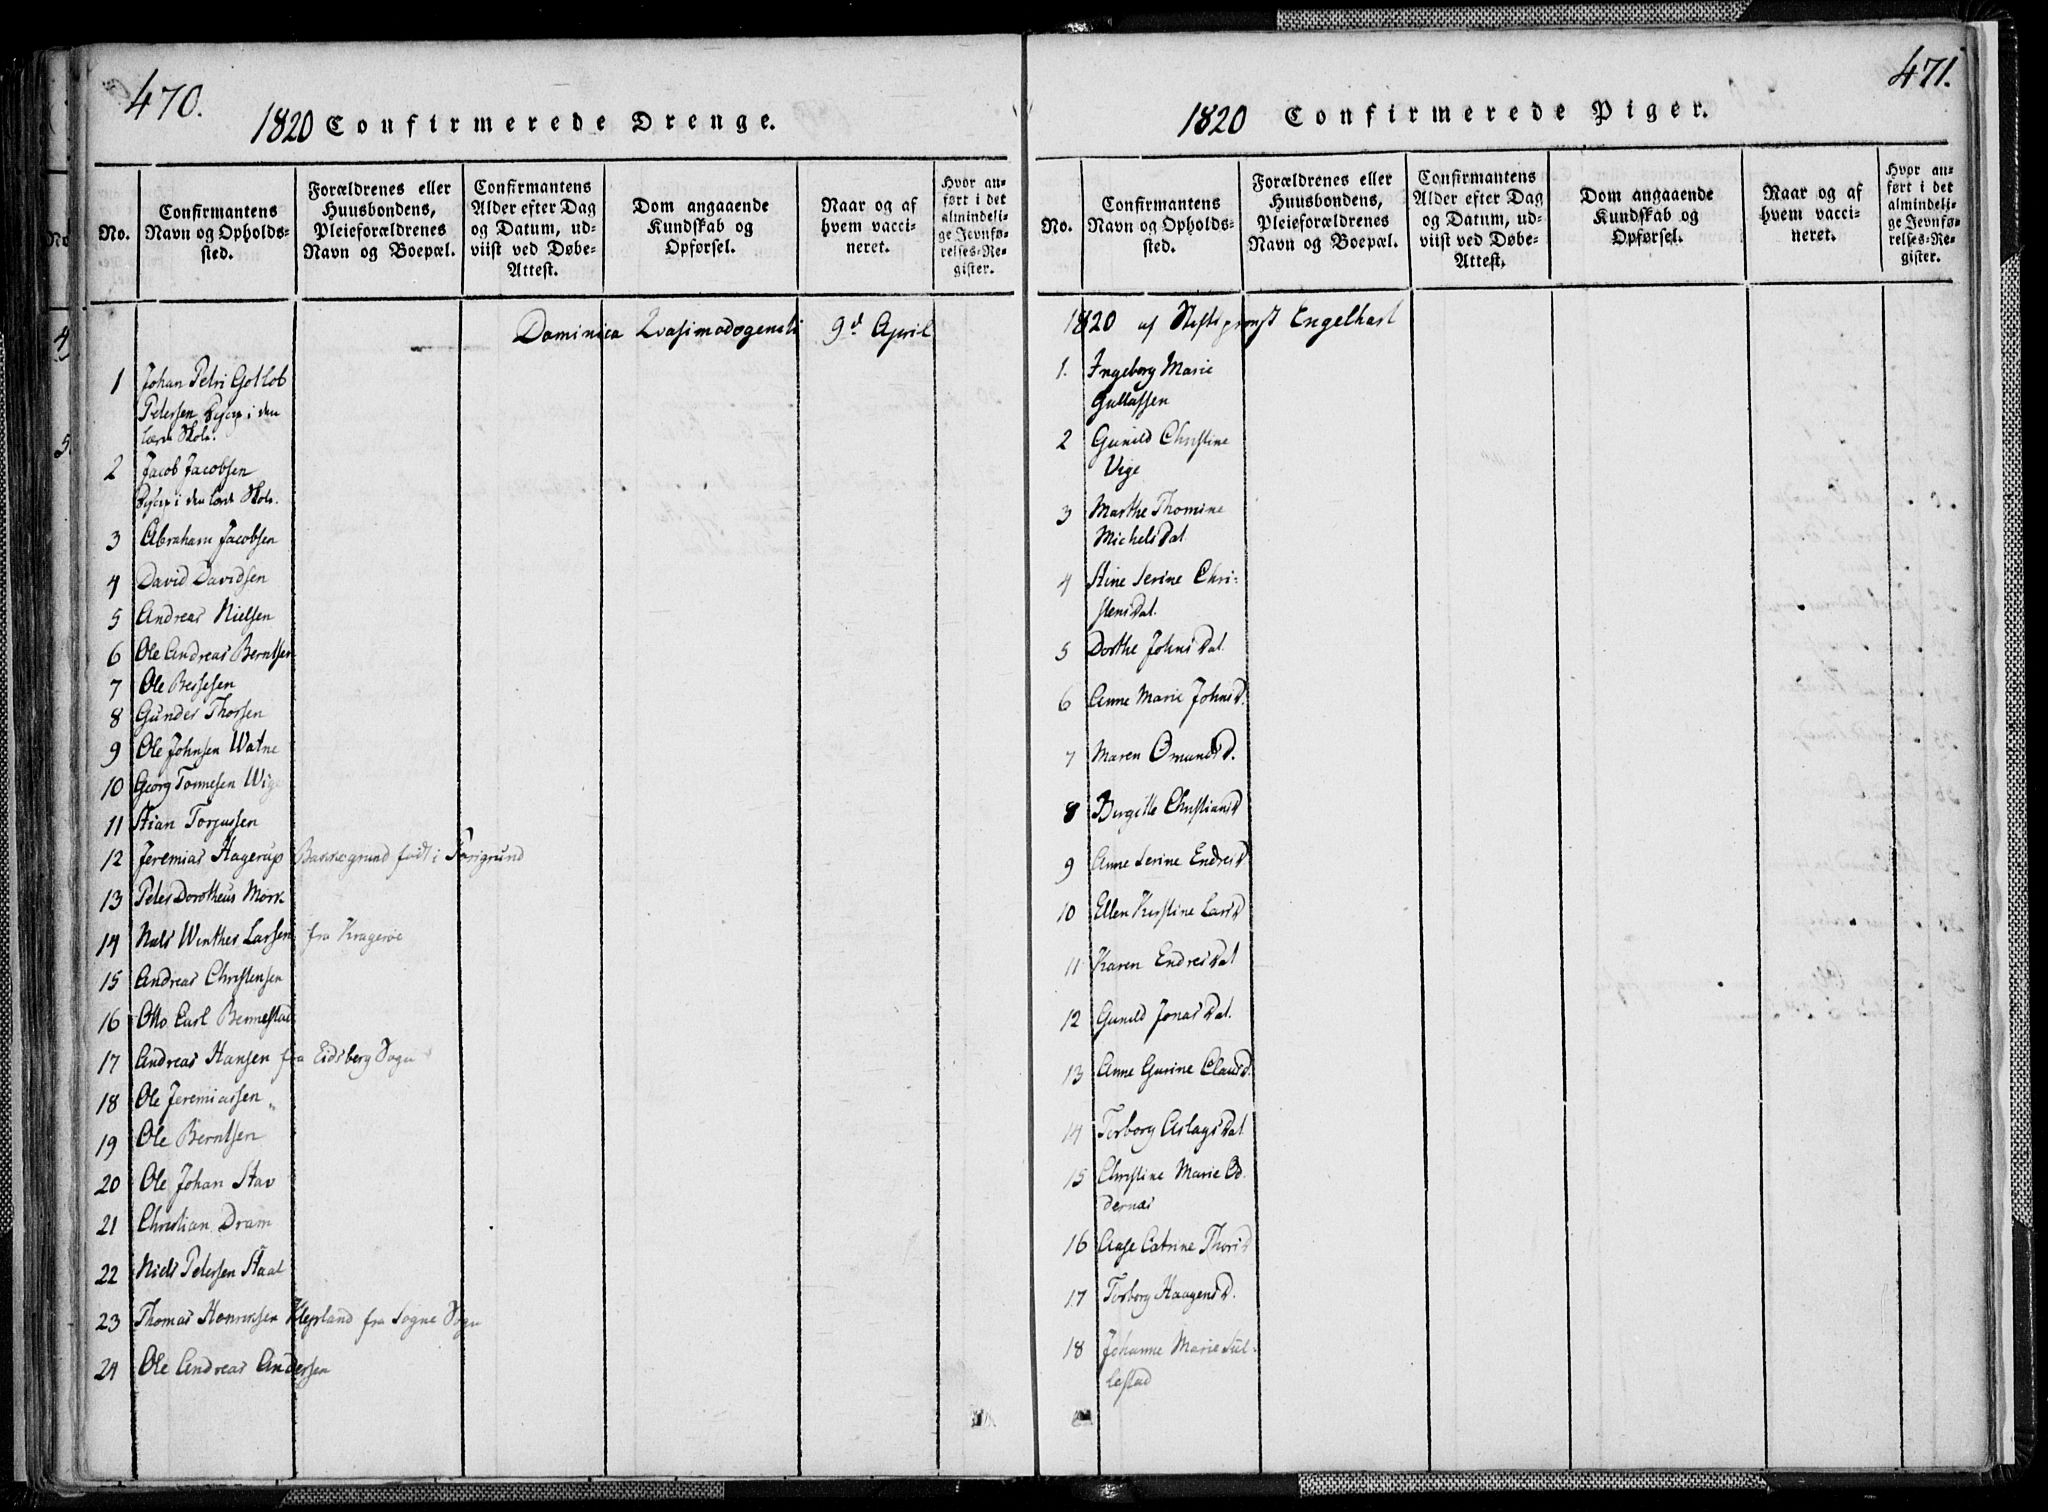 470.
1820 Confirmerede Drenge.
No.
Confirmantens
Navn og Opholds-
sted.
Forældrenes eller
Huusbondens,
Pleieforældrenes
Navn og Boepæl.
Confirmantens
Alder efter Dag
og Datum, ud-
viist ved Døbe-
Attest.
Dom angaaende
Kundskab og
Opførsel.
Naar og af
hvem vacci-
neret.
Hvor an-
ført i det
almindeli-
ge Jevnfø-
relses-Re-
gister.
Dominica Qvasimodogeneti 9d April
1 Johan Petri Gotlob
Petersen i den
lærde Skole.
2 Jacob Jacobsen
i den lærde Skole.
3 Abraham Jacobsen
4 David Davidsen
5 Andreas Nielsen
6 Ole Andreas Berntsen
7 Ole Bessesen
8 Gunder Thorsen
9 Ole Johnsen Watne
10 Georg Tonnesen Wige
11 Stian Torjussen
12 Jeremias Hagerup Barregrund født i Porsgrund
13 Peter Dorotheus Mørk
14 Niels Winther Larsen fra Kragerøe
15 Andreas Christensen
16 Otto Carl Bennestad
17 Andreas Hansen fra Eidsberg Sogn
18 Ole Jeremiassen
19 Ole Berntsen
20 Ole Johan Stav
21 Christian Dram
22 Niels Petersen Staal
23 Thomas Henrichsen Klepland fra Sogne Sogn
24 Ole Andreas Andersen
471.
1820 Confirmerede Piger.
No.
Confirmantens
Navn og Opholds-
sted.
Forældrenes eller
Huusbondens,
Pleieforældrenes
Navn og Boepæl.
Confirmantens
Alder efter Dag
og Datum, ud-
viist ved Døbe-
Attest.
Dom angaaende
Kundskab og
Opførsel.
Naar og af
hvem vacci-
neret.
Hvor an-
ført i det
almindeli-
ge Jevnfø-
relses-Re-
gister.
1820 af Stiftsprovst Engelhart
1. Ingeborg Marie
Gullassen
2 Gunild Christine
Vige
3 Marthe Thomine
MichelsDat
4 Stine Serine Chri-
stensDat.
5 Dorthe JohnsDat.
6 Anne Marie JohnsD.
7 Maren OmundsD.
8 Birgitte ChristiansD
9 Anne Serine EndresD
10 Ellen Kirstine LarsD
11 Karen EndresDat
12 Gunild JonasDat.
13 Anne Gurine ClausD.
14 Torborg AslagsDat
15 Christine Marie Od-
dernæs
16 Aase Catrine ThorsD
17 Torborg HaagensD.
18 Johanne Marie Sul-
lestad